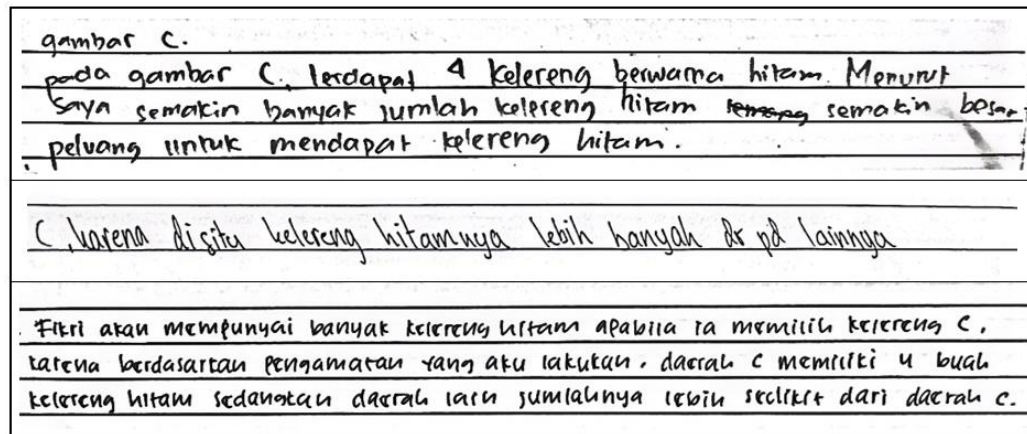 gambar C.
pada gambar C. terdapat 4 kelereng berwarna hitam. Menurut
saya semakin banyak jumlah kelereng hitam semakin besar
peluang untuk mendapat kelereng hitam.
C, karena disitu kelereng hitamnya lebih banyak dr pd lainnya
Fikri akan mempunyai banyak kelereng hitam apabila ia memilih kelereng C,
karena berdasarkan pengamatan yang aku lakukan. daerah C memiliki 4 buah
kelereng hitam sedangkan daerah lain jumlahnya lebih sedikit dari daerah C.